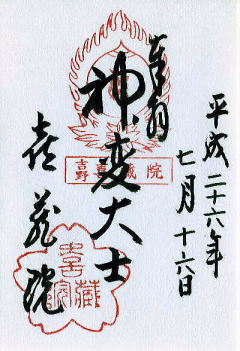 平成二十六年
七月十六日
奉拝
神変大士
喜蔵院
吉野 喜蔵院
喜蔵院